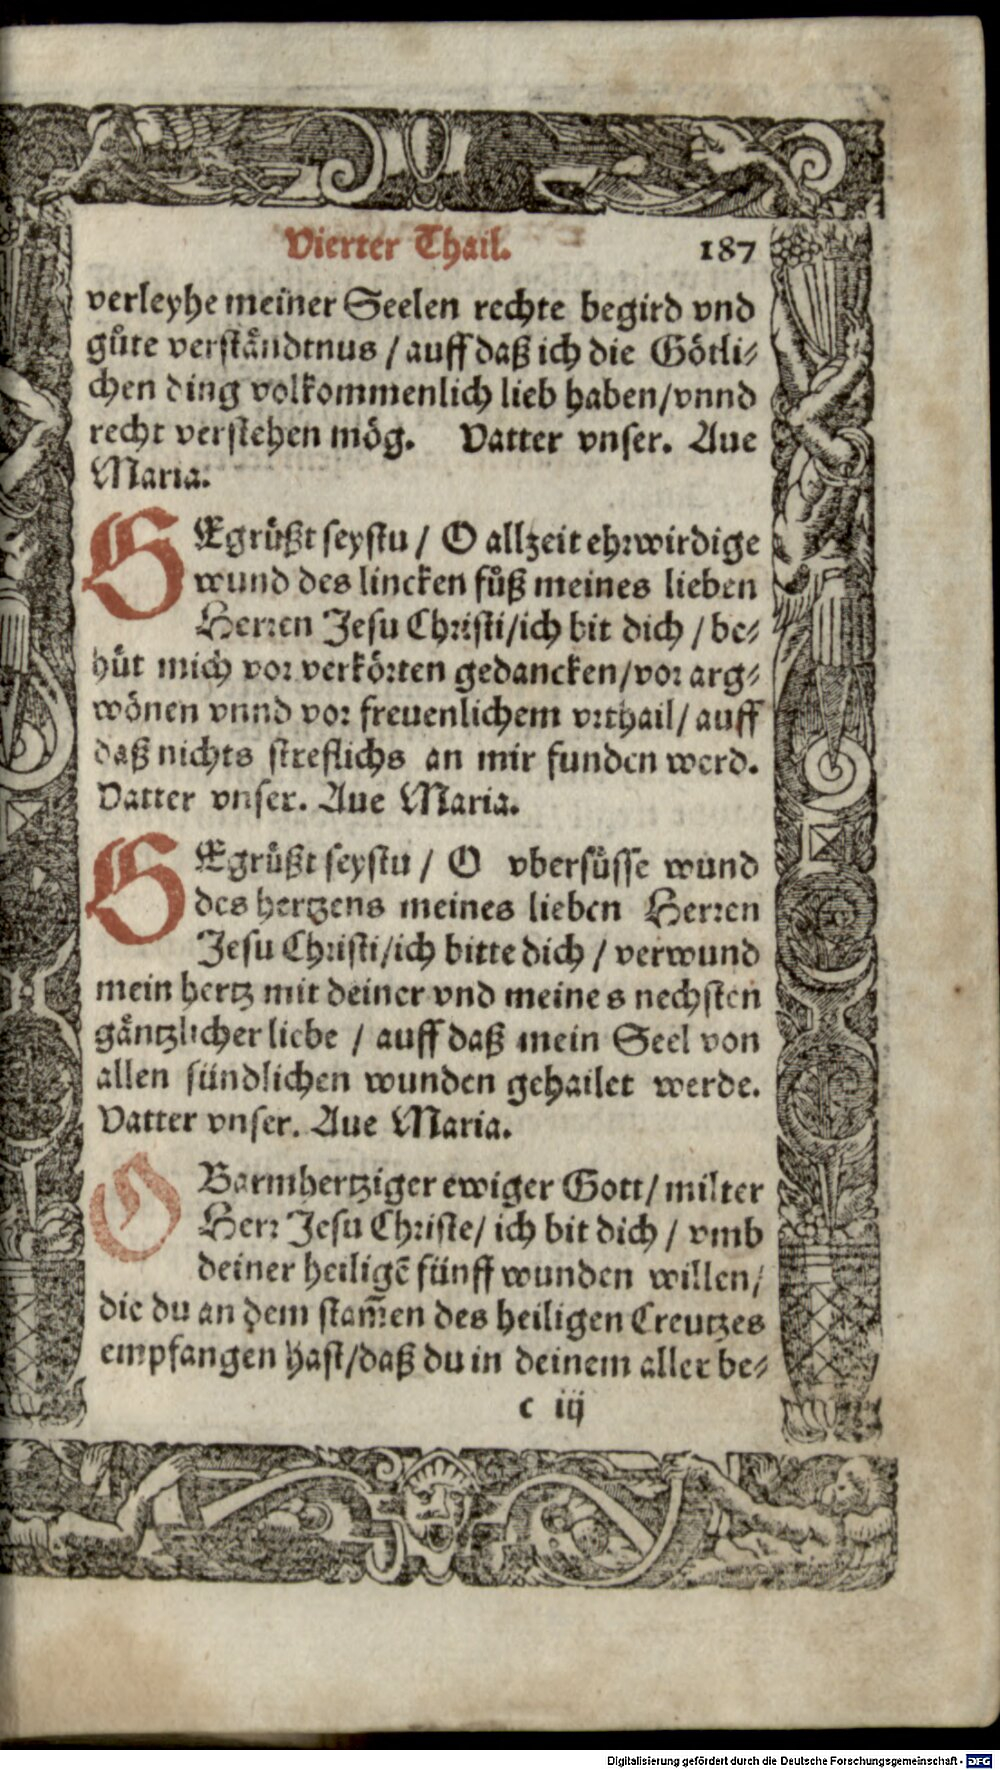 Vierter Thail. 187
verleyhe meiner Seelen rechte begird vnd
gůte verståndtnus / auff daß ich die Götli⸗
chen ding volkommenlich lieb haben/vnnd
recht verstehen mög. Vatter vnser. Aue
Maria.
GEgrůßt seystu / O allzeit ehrwirdige
wund des lincken fůß meines lieben
Herren Jesu Christi/ich bit dich / be⸗
hůt mich vor verkörten gedancken/vor arg⸗
wönen vnnd vor freuenlichem vrthail/ auff
daß nichts streflichs an mir funden werd.
Vatter vnser. Aue Maria.
GEgrůßt seystu / O vbersůsse wund
des hertzens meines lieben Herren
Jesu Christi/ich bitte dich / verwund
mein hertz mit deiner vnd meines nechsten
gåntzlicher liebe / auff daß mein Seel von
allen sündlichen wunden gehailet werde.
Vatter vnser. Aue Maria.
O Barmhertziger ewiger Gott/ milter
Herr Jesu Christe/ ich bit dich / vmb
deiner heiligē fünff wunden willen/
die du an dem stam̄en des heiligen Creutzes
empfangen hast/daß du in deinem aller be⸗
c iij
Digitalisierung gefördert durch die Deutsche Forschungsgemeinschaft - DFG